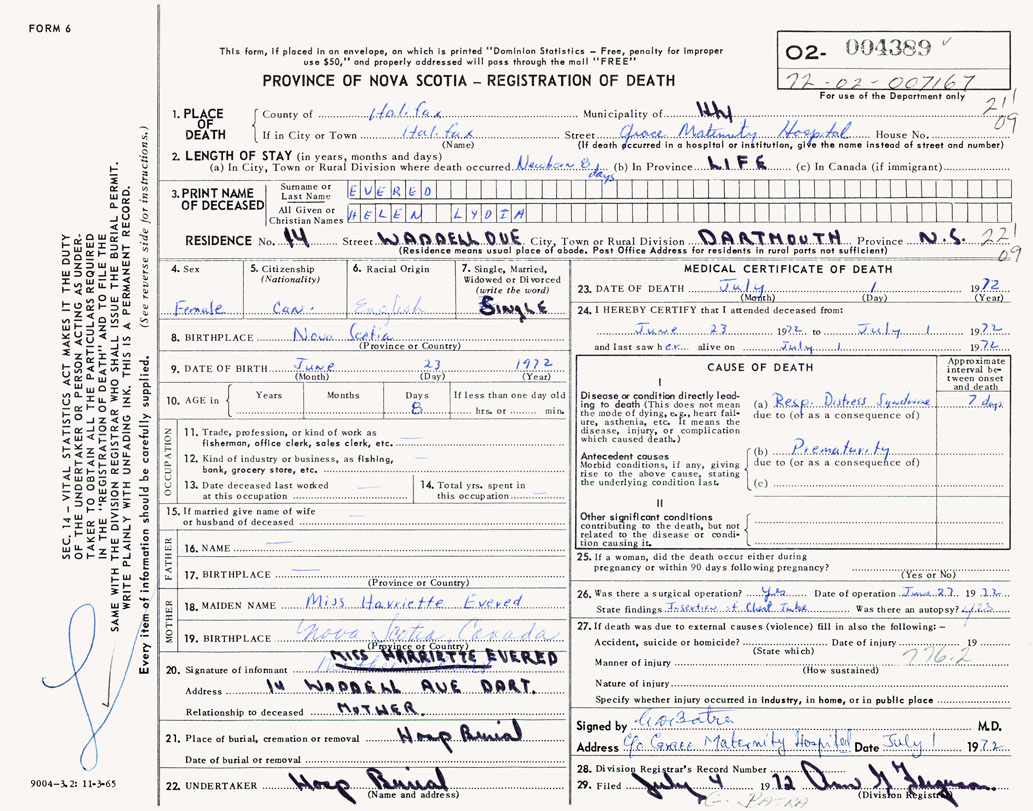 FORM 6
This form, if placed in an envelope, on which is printed "Dominion Statistics – Free, penalty for improper
use $50," and properly addressed will pass through the mail "FREE"
PROVINCE OF NOVA SCOTIA – REGISTRATION OF DEATH
O2- 004389
72-02-007167
For use of the Department only
211
09
1. PLACE OF DEATH
County of Halifax Municipality of
If in City or Town Halifax Street Grace Maternity Hospital House No.
(Name) (If death occurred in a hospital or institution, give the name instead of street and number)
2. LENGTH OF STAY (in years, months and days)
(a) In City, Town or Rural Division where death occurred Newborn 8 days (b) In Province LIFE (c) In Canada (if immigrant)
3. PRINT NAME OF DECEASED
Surname or Last Name EVERED
All Given or Christian Names HELEN LYDIA
RESIDENCE No. 14 Street WADDELL AVE City, Town or Rural Division DARTMOUTH Province N.S. 221
09
(Residence means usual place of abode. Post Office Address for residents in rural parts not sufficient)
4. Sex
Female
5. Citizenship
(Nationality)
Can.
6. Racial Origin
English
7. Single, Married,
Widowed or Divorced
(write the word)
SINGLE
8. BIRTHPLACE Nova Scotia
(Province or Country)
9. DATE OF BIRTH June 23 1972
(Month) (Day) (Year)
10. AGE in Years Months Days 8 If less than one day old
hrs. or min.
OCCUPATION
11. Trade, profession, or kind of work as
fisherman, office clerk, sales clerk, etc.
12. Kind of industry or business, as fishing,
bank, grocery store, etc.
13. Date deceased last worked
at this occupation
14. Total yrs. spent in
this occupation
15. If married give name of wife
or husband of deceased
FATHER
16. NAME
17. BIRTHPLACE
(Province or Country)
MOTHER
18. MAIDEN NAME Miss Harriette Evered
19. BIRTHPLACE Nova Scotia, Canada
(Province or Country)
MISS HARRIETTE EVERED
20. Signature of informant
Address 14 WADDELL AVE DART.
Relationship to deceased MOTHER.
21. Place of burial, cremation or removal Hosp Burial
Date of burial or removal
22. UNDERTAKER Hosp Burial
(Name and address)
MEDICAL CERTIFICATE OF DEATH
23. DATE OF DEATH July 1 1972
(Month) (Day) (Year)
24. I HEREBY CERTIFY that I attended deceased from:
June 23 1972 to July 1 1972
and last saw her alive on July 1 1972
CAUSE OF DEATH
Approximate
interval be-
tween onset
and death
I
Disease or condition directly lead-
ing to death (This does not mean
the mode of dying, e.g., heart fail-
ure, asthenia, etc. It means the
disease, injury, or complication
which caused death.)
(a) Resp. Distress Syndrome 7 days
due to (or as a consequence of)
Antecedent causes
Morbid conditions, if any, giving
rise to the above cause, stating
the underlying condition last.
(b) Prematurity
due to (or as a consequence of)
(c)
II
Other significant conditions
contributing to the death, but not
related to the disease or condi-
tion causing it.
25. If a woman, did the death occur either during
pregnancy or within 90 days following pregnancy?
(Yes or No)
26. Was there a surgical operation? Yes Date of operation June 27 1972
State findings Insertion of Chest Tube Was there an autopsy?
27. If death was due to external causes (violence) fill in also the following: –
Accident, suicide or homicide? Date of injury 19
(State which)
776.2
Manner of injury
(How sustained)
Nature of injury
Specify whether injury occurred in industry, in home, or in public place
Signed by M.D.
Address c/o Grace Maternity Hospital Date July 1 1972
28. Division Registrar's Record Number
29. Filed July 4 1972 Ann G Ferguson
(Division Registrar)
SEC. 14 – VITAL STATISTICS ACT MAKES IT THE DUTY
OF THE UNDERTAKER OR PERSON ACTING AS UNDER-
TAKER TO OBTAIN ALL THE PARTICULARS REQUIRED
IN THE "REGISTRATION OF DEATH" AND TO FILE THE
SAME WITH THE DIVISION REGISTRAR WHO SHALL ISSUE THE BURIAL PERMIT.
WRITE PLAINLY WITH UNFADING INK. THIS IS A PERMANENT RECORD.
Every item of information should be carefully supplied. (See reverse side for instructions.)
9004-3.2: 11-3-65